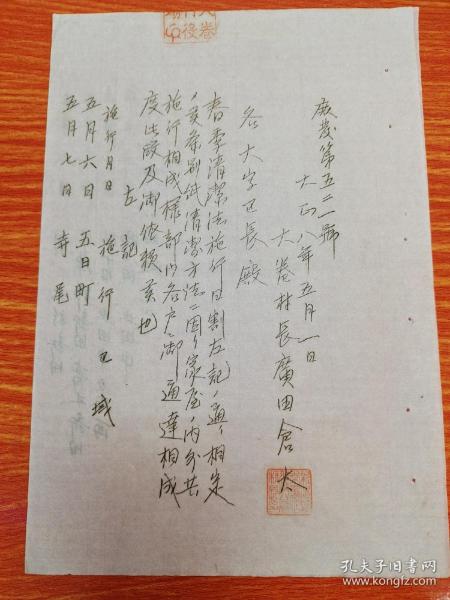 庶発第五二一號
大正八年五月一日
大巻村長廣田倉太
各大字区長殿
春季清潔法施行日割左記ノ通リ相定
候条別紙清潔方法ニ因リ家屋ノ内外共
施行相成様部内各戸ニ御通達相成
度此段及御依頼候也
左記
施行月日 施行区域
五月六日 五日町
五月七日 寺尾
孔夫子旧书网
www.kongfz.com